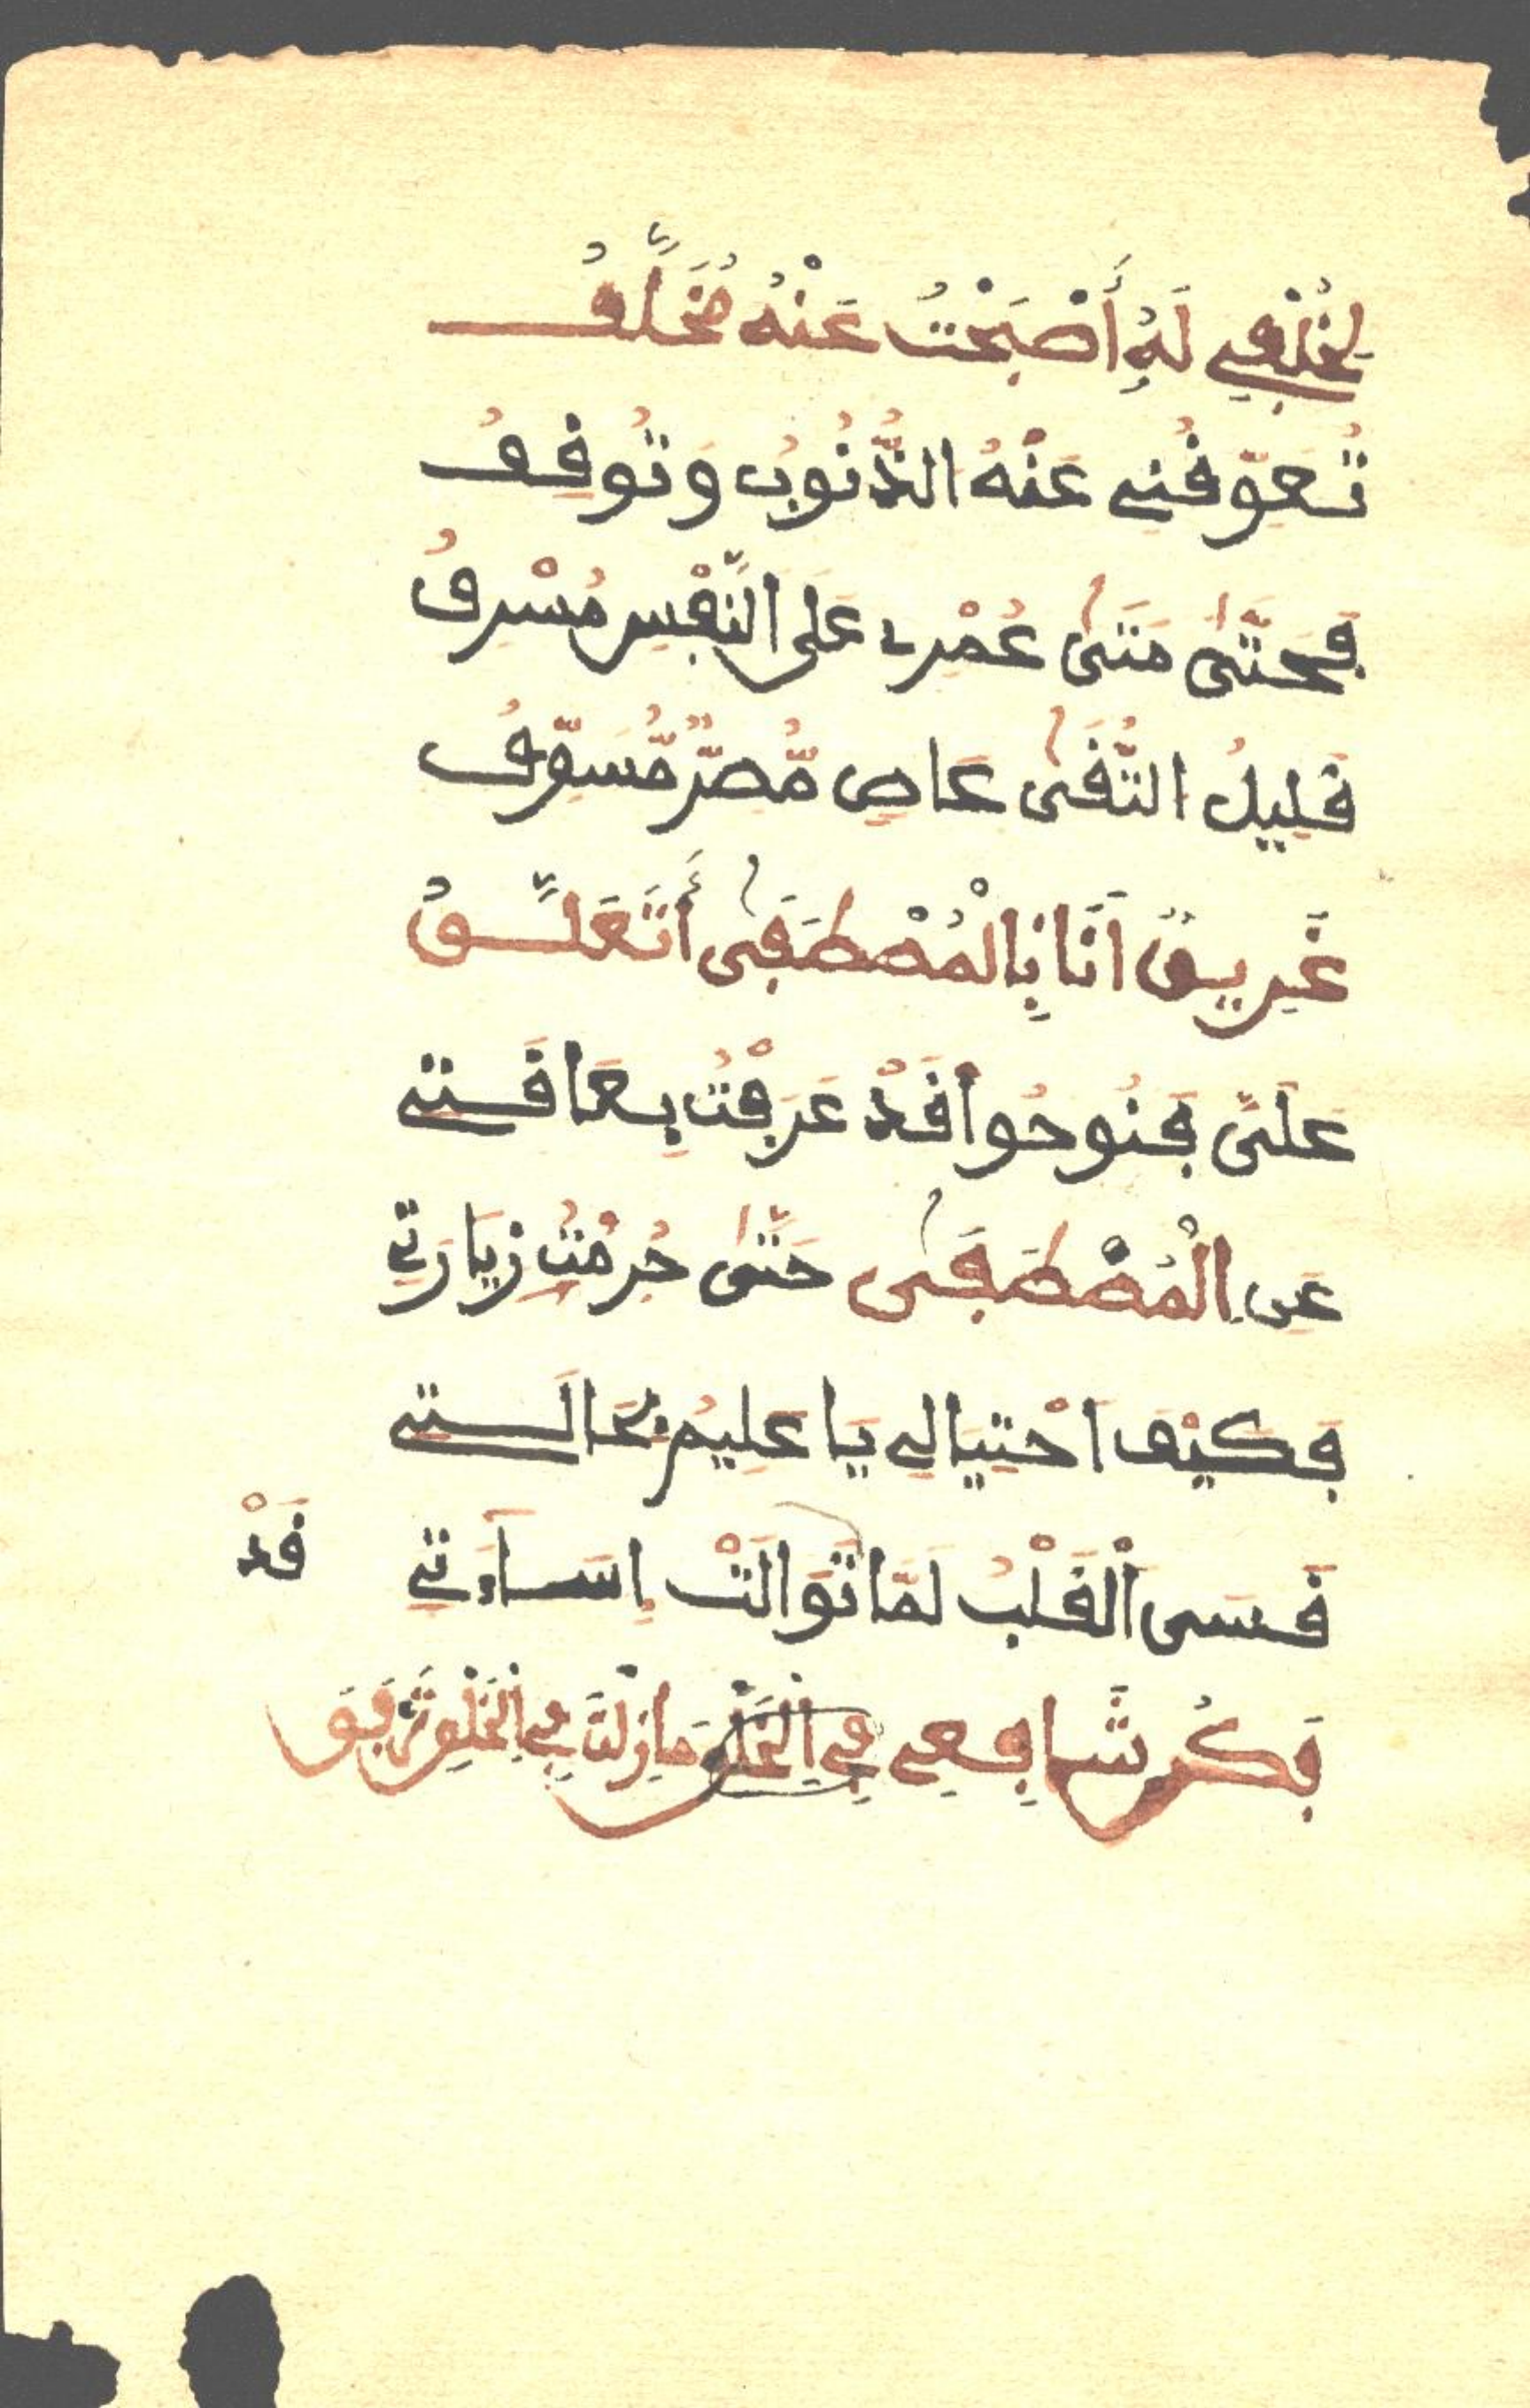 لِخُلْفِي لَهُ أَصْبَحْتُ عَنْهُ مُخَلَّفُ
تُعَوِّقُنِي عَنْهُ الذُّنُوبُ وَتُوقِفُ
فَحَتَّىٰ مَتَىٰ عُمْرِي عَلَى النَّفْسِ مُسْرِفُ
قَلِيلُ التُّقَىٰ عَاصٍ مُّصِرٌّ مُّسَوِّفُ
غَرِيقٌ أَنَا بِالْمُصْطَفَىٰ أَتَعَلَّقُ
عَلَىَّ فَنُوحُوا قَدْ عَرَفْتُ بِعَاقَتِي
عَنِ الْمُصْطَفَىٰ حَتَّىٰ حُرِمْتُ زِيَارَتِي
فَكَيْفَ احْتِيَالِي يَا عَلِيمُ بِحَالَتِي
قَسَى الْقَلْبُ لَمَّا تَوَالَتْ إِسَاءَتِي
قَدْ
فَكُن شَافِعِي فِي الْخَلْقِ مَا زِلْتَ فِي الْخَلْقِ